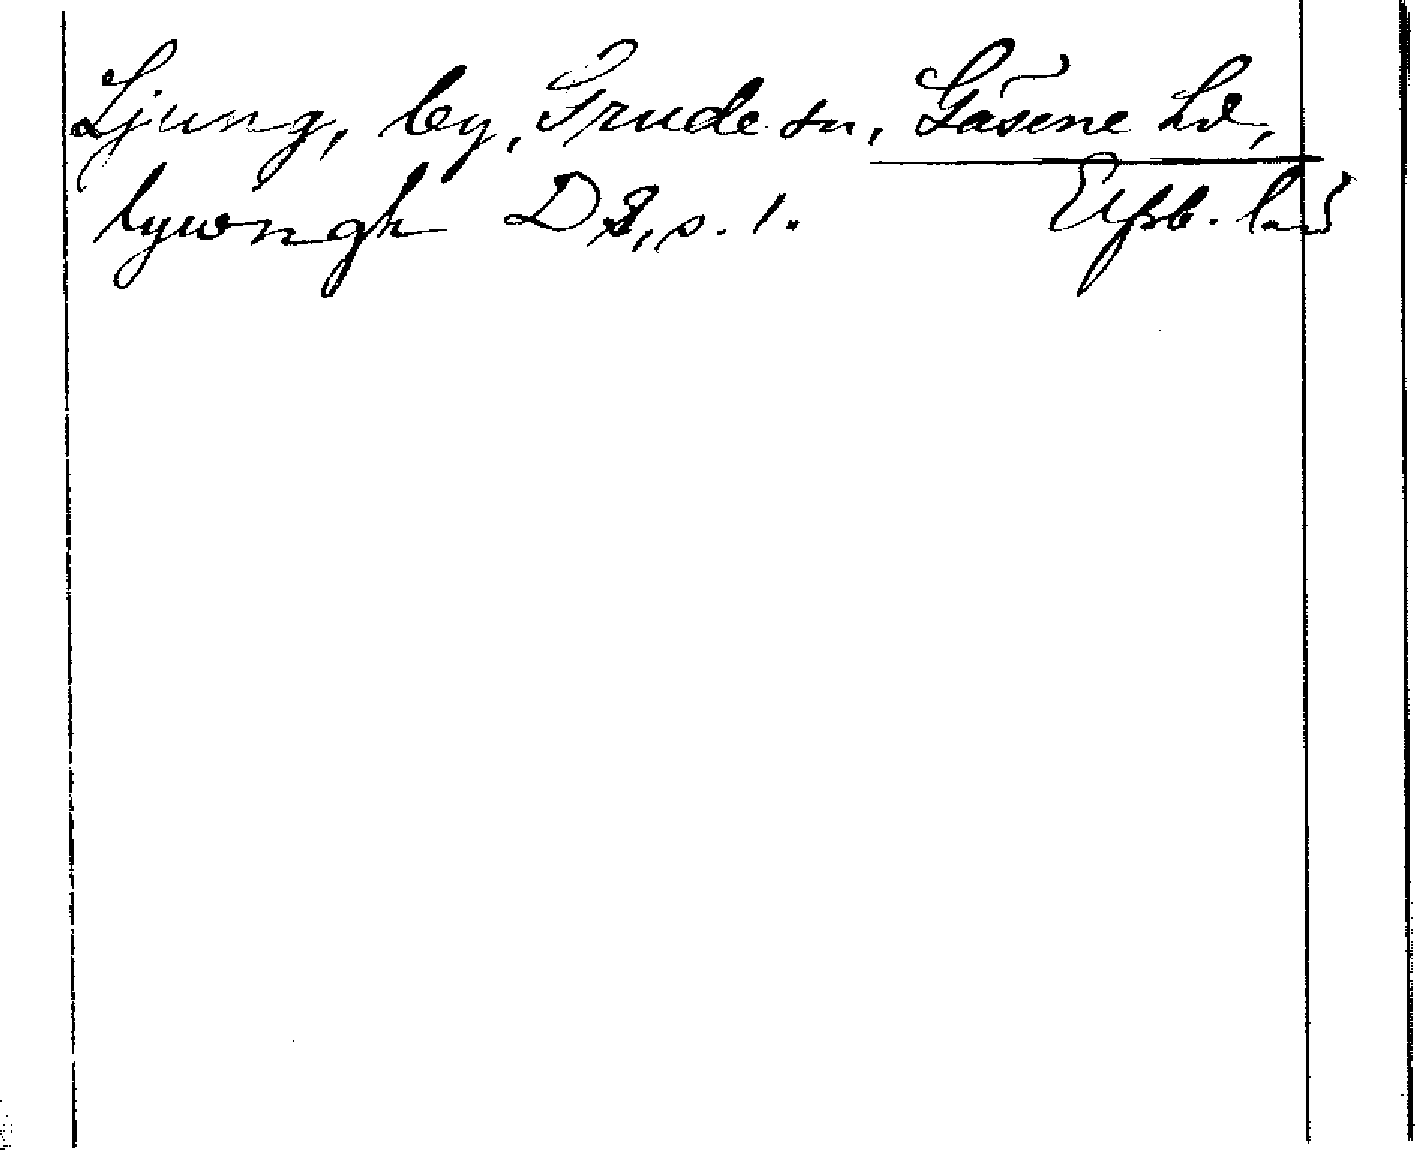 Ljung, by, Grude sn, Gäsene hd,
lywngh D 8, s. 1. Elfsb. län